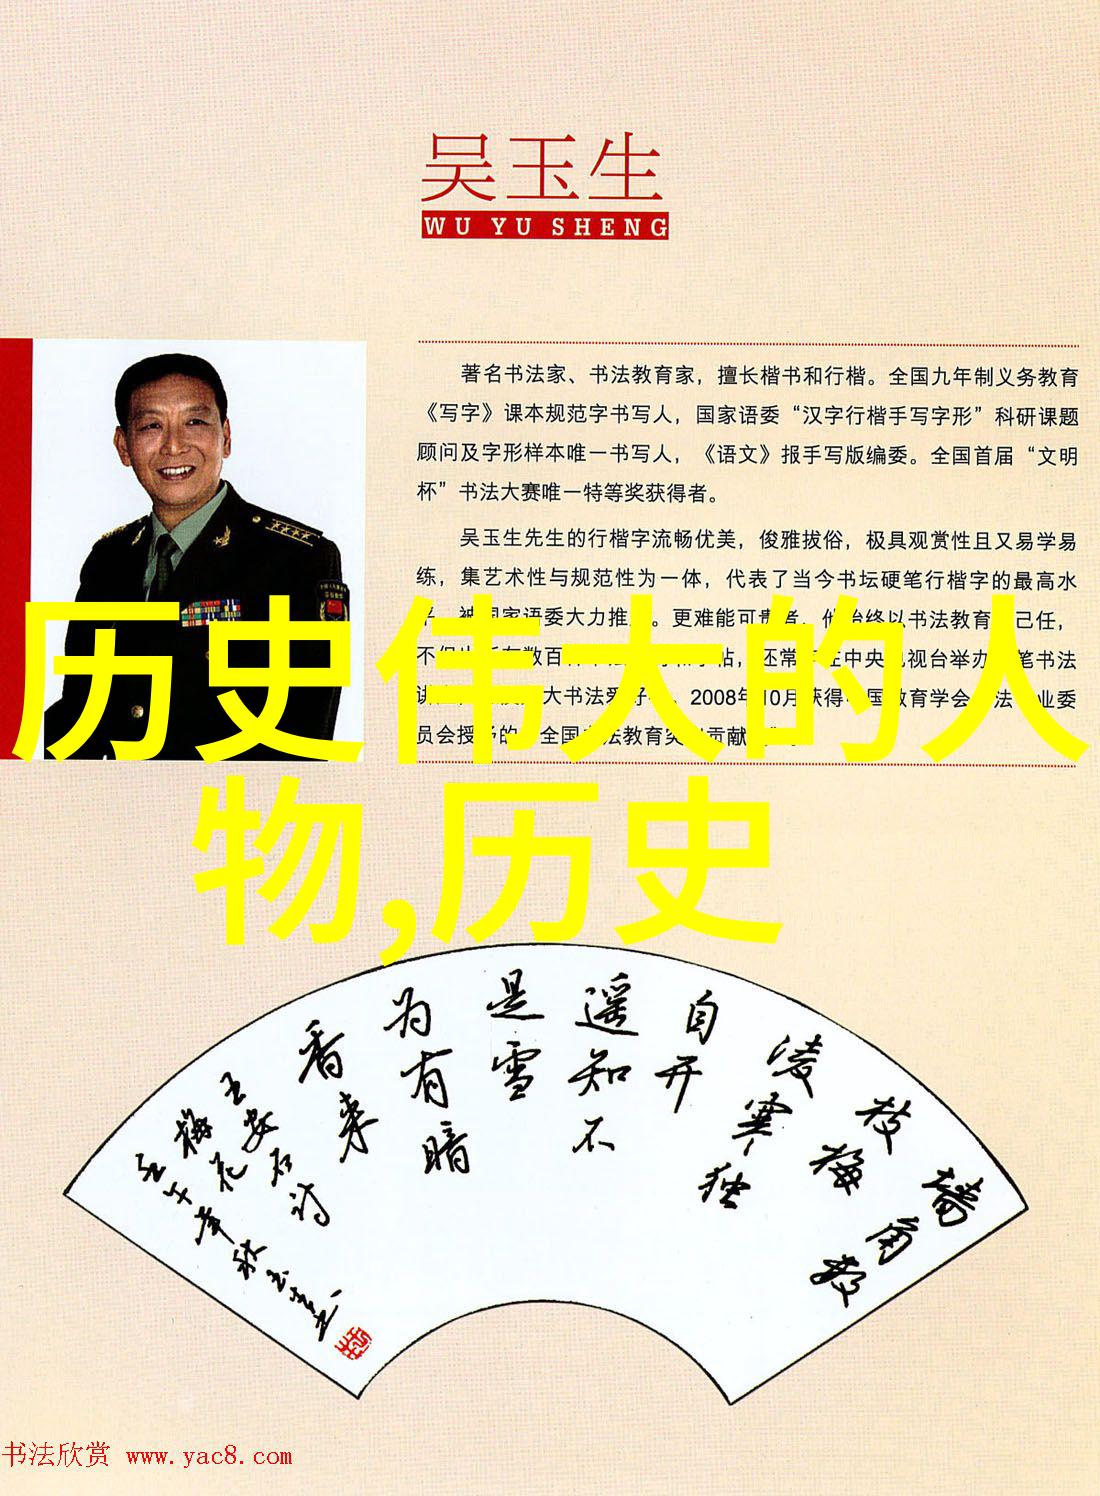 吴玉生
WU YU SHENG
著名书法家、书法教育家，擅长楷书和行楷。全国九年制义务教育
《写字》课本规范字书写人，国家语委“汉字行楷手写字形”科研课题
顾问及字形样本唯一书写人，《语文》报手写版编委。全国首届“文明
杯”书法大赛唯一特等奖获得者。
吴玉生先生的行楷字流畅优美，俊雅拔俗，极具观赏性且又易学易
练，集艺术性与规范性为一体，代表了当今书坛硬笔行楷字的最高水
被国家语委大力推 。更难能可贵者，他始终以书法教育 己任，
不但 在数百 帖，还常 在中央电视台举办 笔书法
讲 大书法爱好 。2008年10月获得中国教育学会 法专业委
员会授予的“全国书法教育突 贡献
历史伟大的人
物,历史
墙角数
枝梅
凌寒独
自开
遥知不
是雪
为有暗
香来
王安石诗
梅花
壬午年秋玉生书
书法欣赏 www.yac8.com